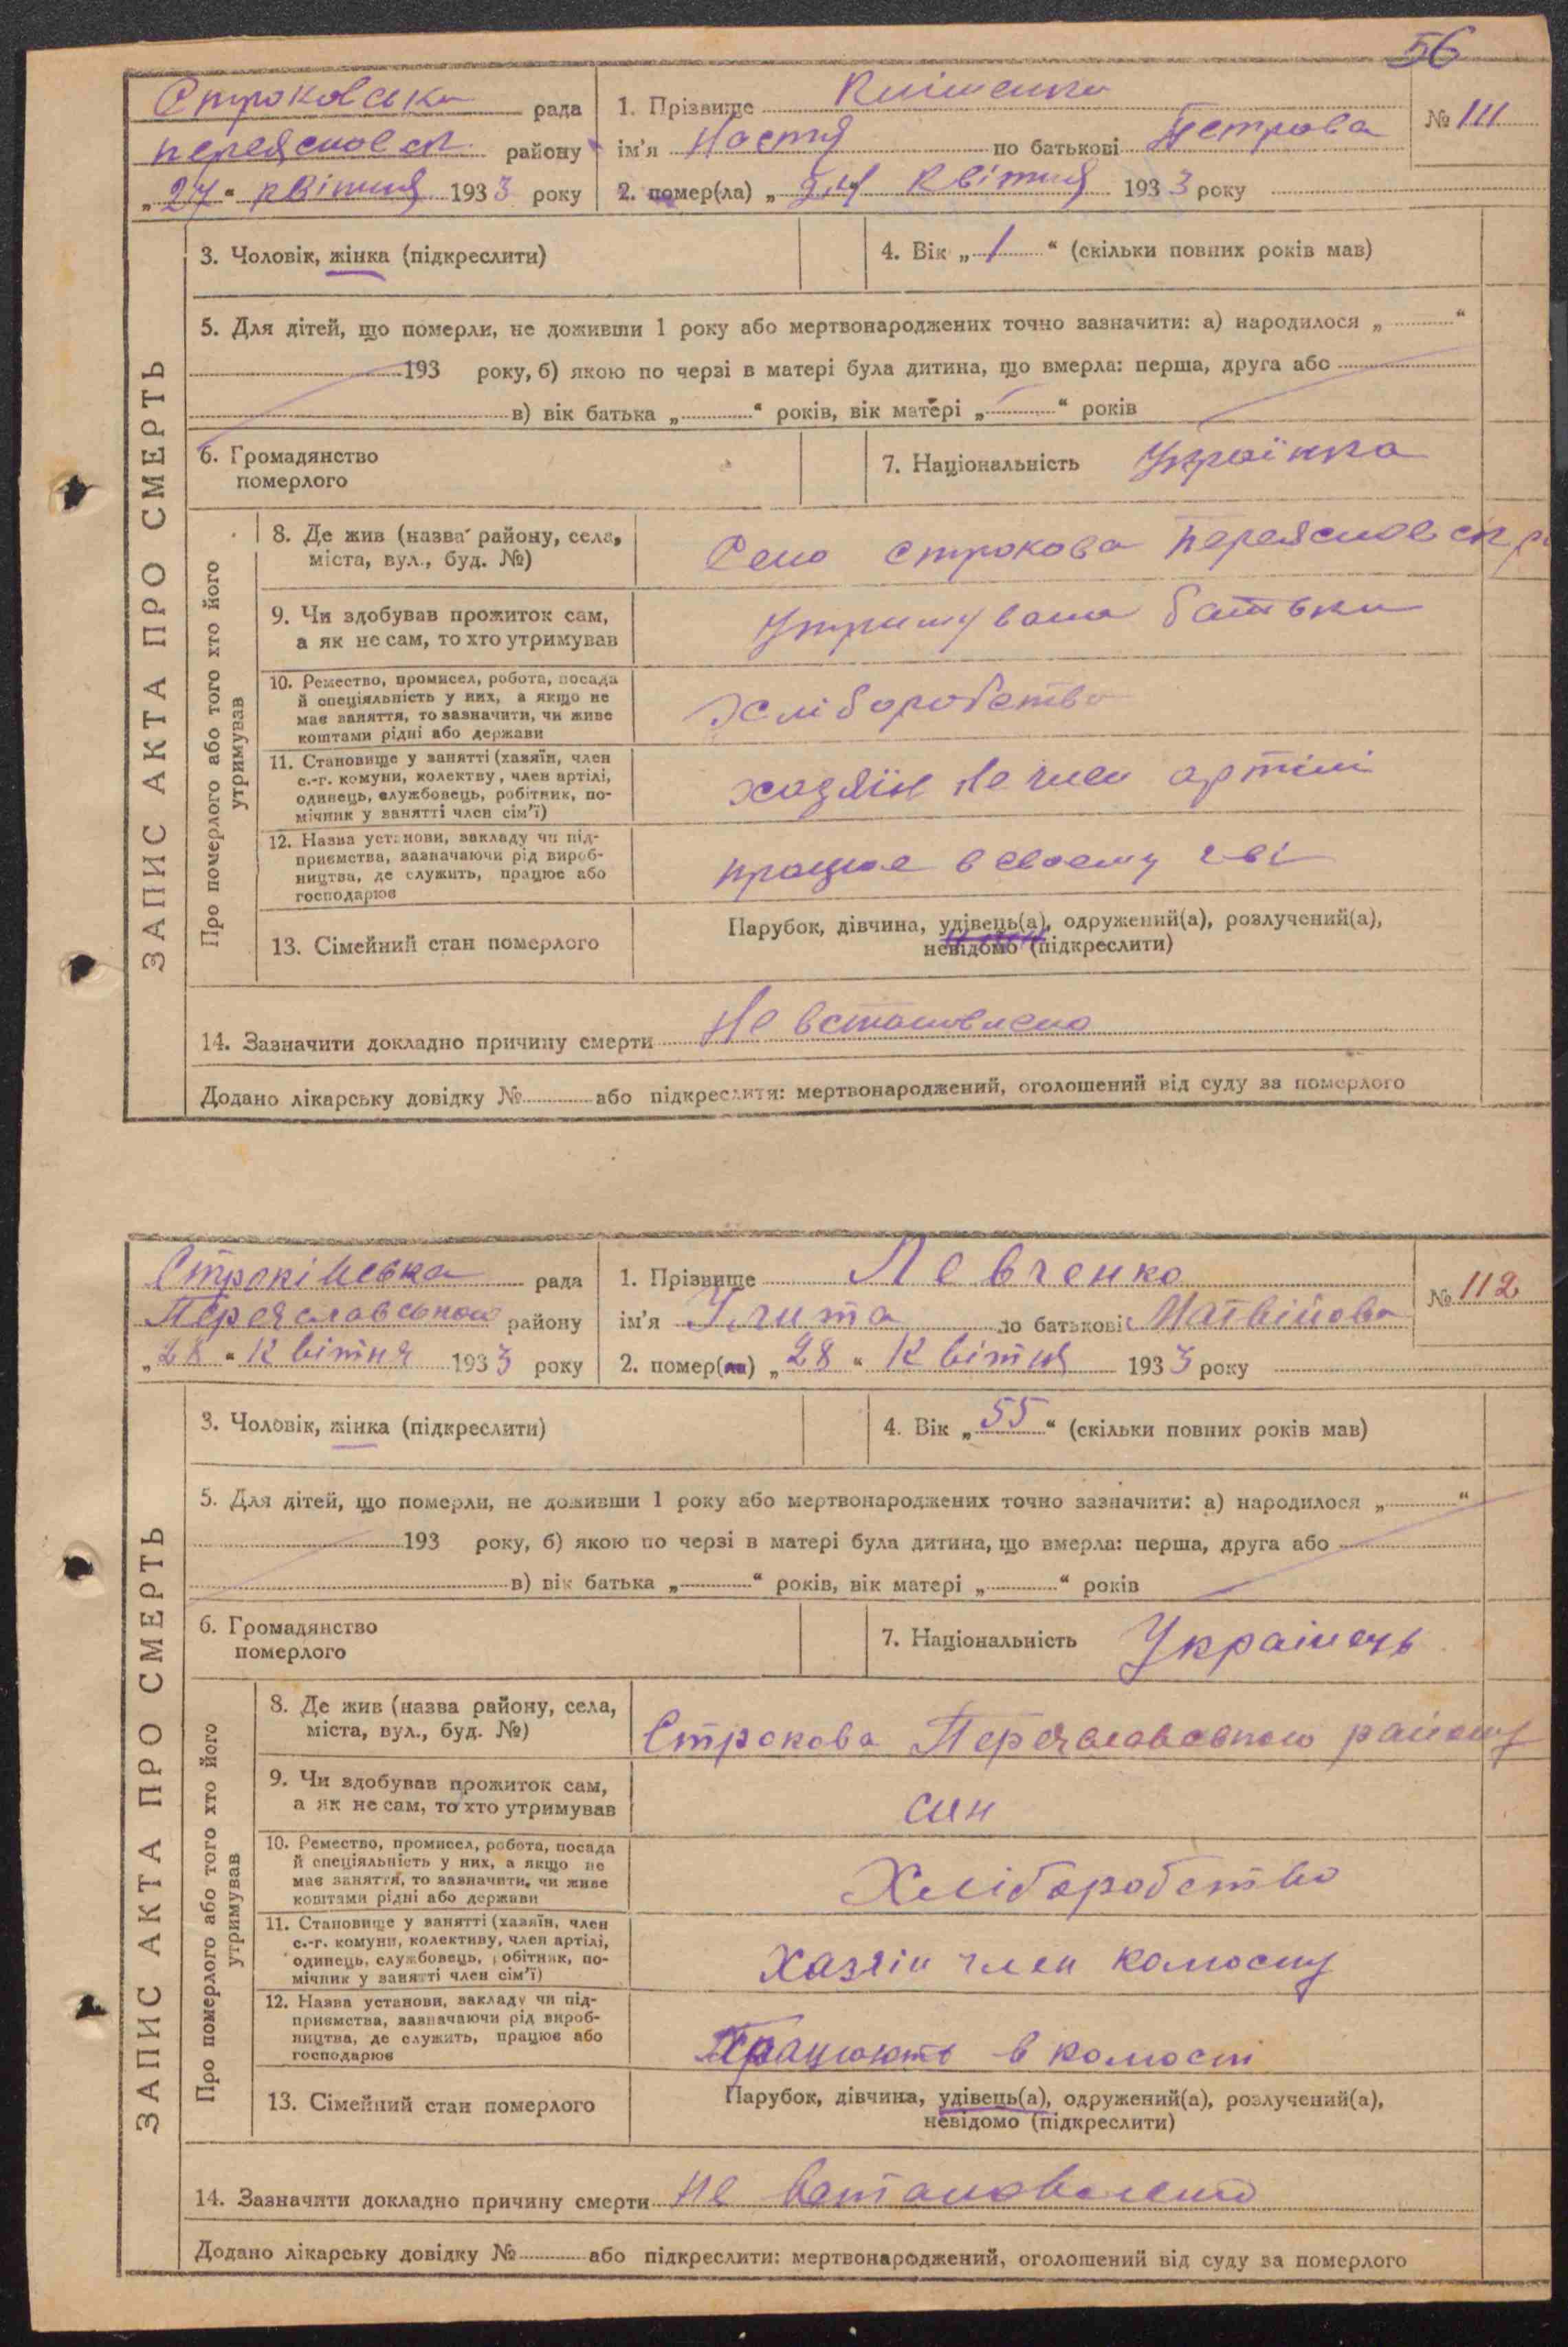 56
Строковська рада
переяславськ. району
„27“ квітня 1933 року
1. Прізвище Клименко
ім'я Настя по батькові Петрова
2. помер(ла) „ квітня 1933 року
№ 111
ЗАПИС АКТА ПРО СМЕРТЬ
3. Чоловік, жінка (підкреслити)
4. Вік „1“ (скільки повних років мав)
5. Для дітей, що померли, не доживши 1 року або мертвонароджених точно зазначити: а) народилося „ “
193 року, б) якою по черзі в матері була дитина, що вмерла: перша, друга або
в) вік батька „ “ років, вік матері „ “ років
6. Громадянство
померлого
7. Національність Українка
Про померлого або того хто його
утримував
8. Де жив (назва району, села,
міста, вул., буд. №)
Село строкова переяславськ р
9. Чи здобував прожиток сам,
а як не сам, то хто утримував
Утримувала батьки
10. Ремество, промисел, робота, посада
й спеціяльність у них, а якщо не
має заняття, то зазначити, чи живе
коштами рідні або держави
хліборобство
11. Становище у занятті (хазяїн, член
с.-г. комуни, колективу, член артілі,
одинець, службовець, робітник, по-
мічник у занятті член сім'ї)
хазяїн не член артілі
12. Назва установи, закладу чи під-
приємства, зазначаючи рід вироб-
ництва, де служить, працює або
господарює
працює в своему г-ві
13. Сімейний стан померлого
Парубок, дівчина, удівець(а), одружений(а), розлучений(а),
невідомо (підкреслити)
14. Зазначити докладно причину смерти Не встановлено
Додано лікарську довідку № або підкреслити: мертвонароджений, оголошений від суду за померлого
Строківська рада
Переяславського району
„28“ Квітня 1933 року
1. Прізвище Левченко
ім'я Улита по батькові Матвійова
2. помер(ла) „28“ Квітня 1933 року
№ 112
ЗАПИС АКТА ПРО СМЕРТЬ
3. Чоловік, жінка (підкреслити)
4. Вік „55“ (скільки повних років мав)
5. Для дітей, що померли, не доживши 1 року або мертвонароджених точно зазначити: а) народилося „ “
193 року, б) якою по черзі в матері була дитина, що вмерла: перша, друга або
в) вік батька „ “ років, вік матері „ “ років
6. Громадянство
померлого
7. Національність Українець
Про померлого або того хто його
утримував
8. Де жив (назва району, села,
міста, вул., буд. №)
Строкова Переяславського району
9. Чи здобував прожиток сам,
а як не сам, то хто утримував
син
10. Ремество, промисел, робота, посада
й спеціяльність у них, а якщо не
має заняття, то зазначити, чи живе
коштами рідні або держави
Хліборобство
11. Становище у занятті (хазяїн, член
с.-г. комуни, колективу, член артілі,
одинець, службовець, робітник, по-
мічник у занятті член сім'ї)
Хазяін член колгоспу
12. Назва установи, закладу чи під-
приємства, зазначаючи рід вироб-
ництва, де служить, працює або
господарює
Працюють в колгоспі
13. Сімейний стан померлого
Парубок, дівчина, удівець(а), одружений(а), розлучений(а),
невідомо (підкреслити)
14. Зазначити докладно причину смерти не встановлено
Додано лікарську довідку № або підкреслити: мертвонароджений, оголошений від суду за померлого